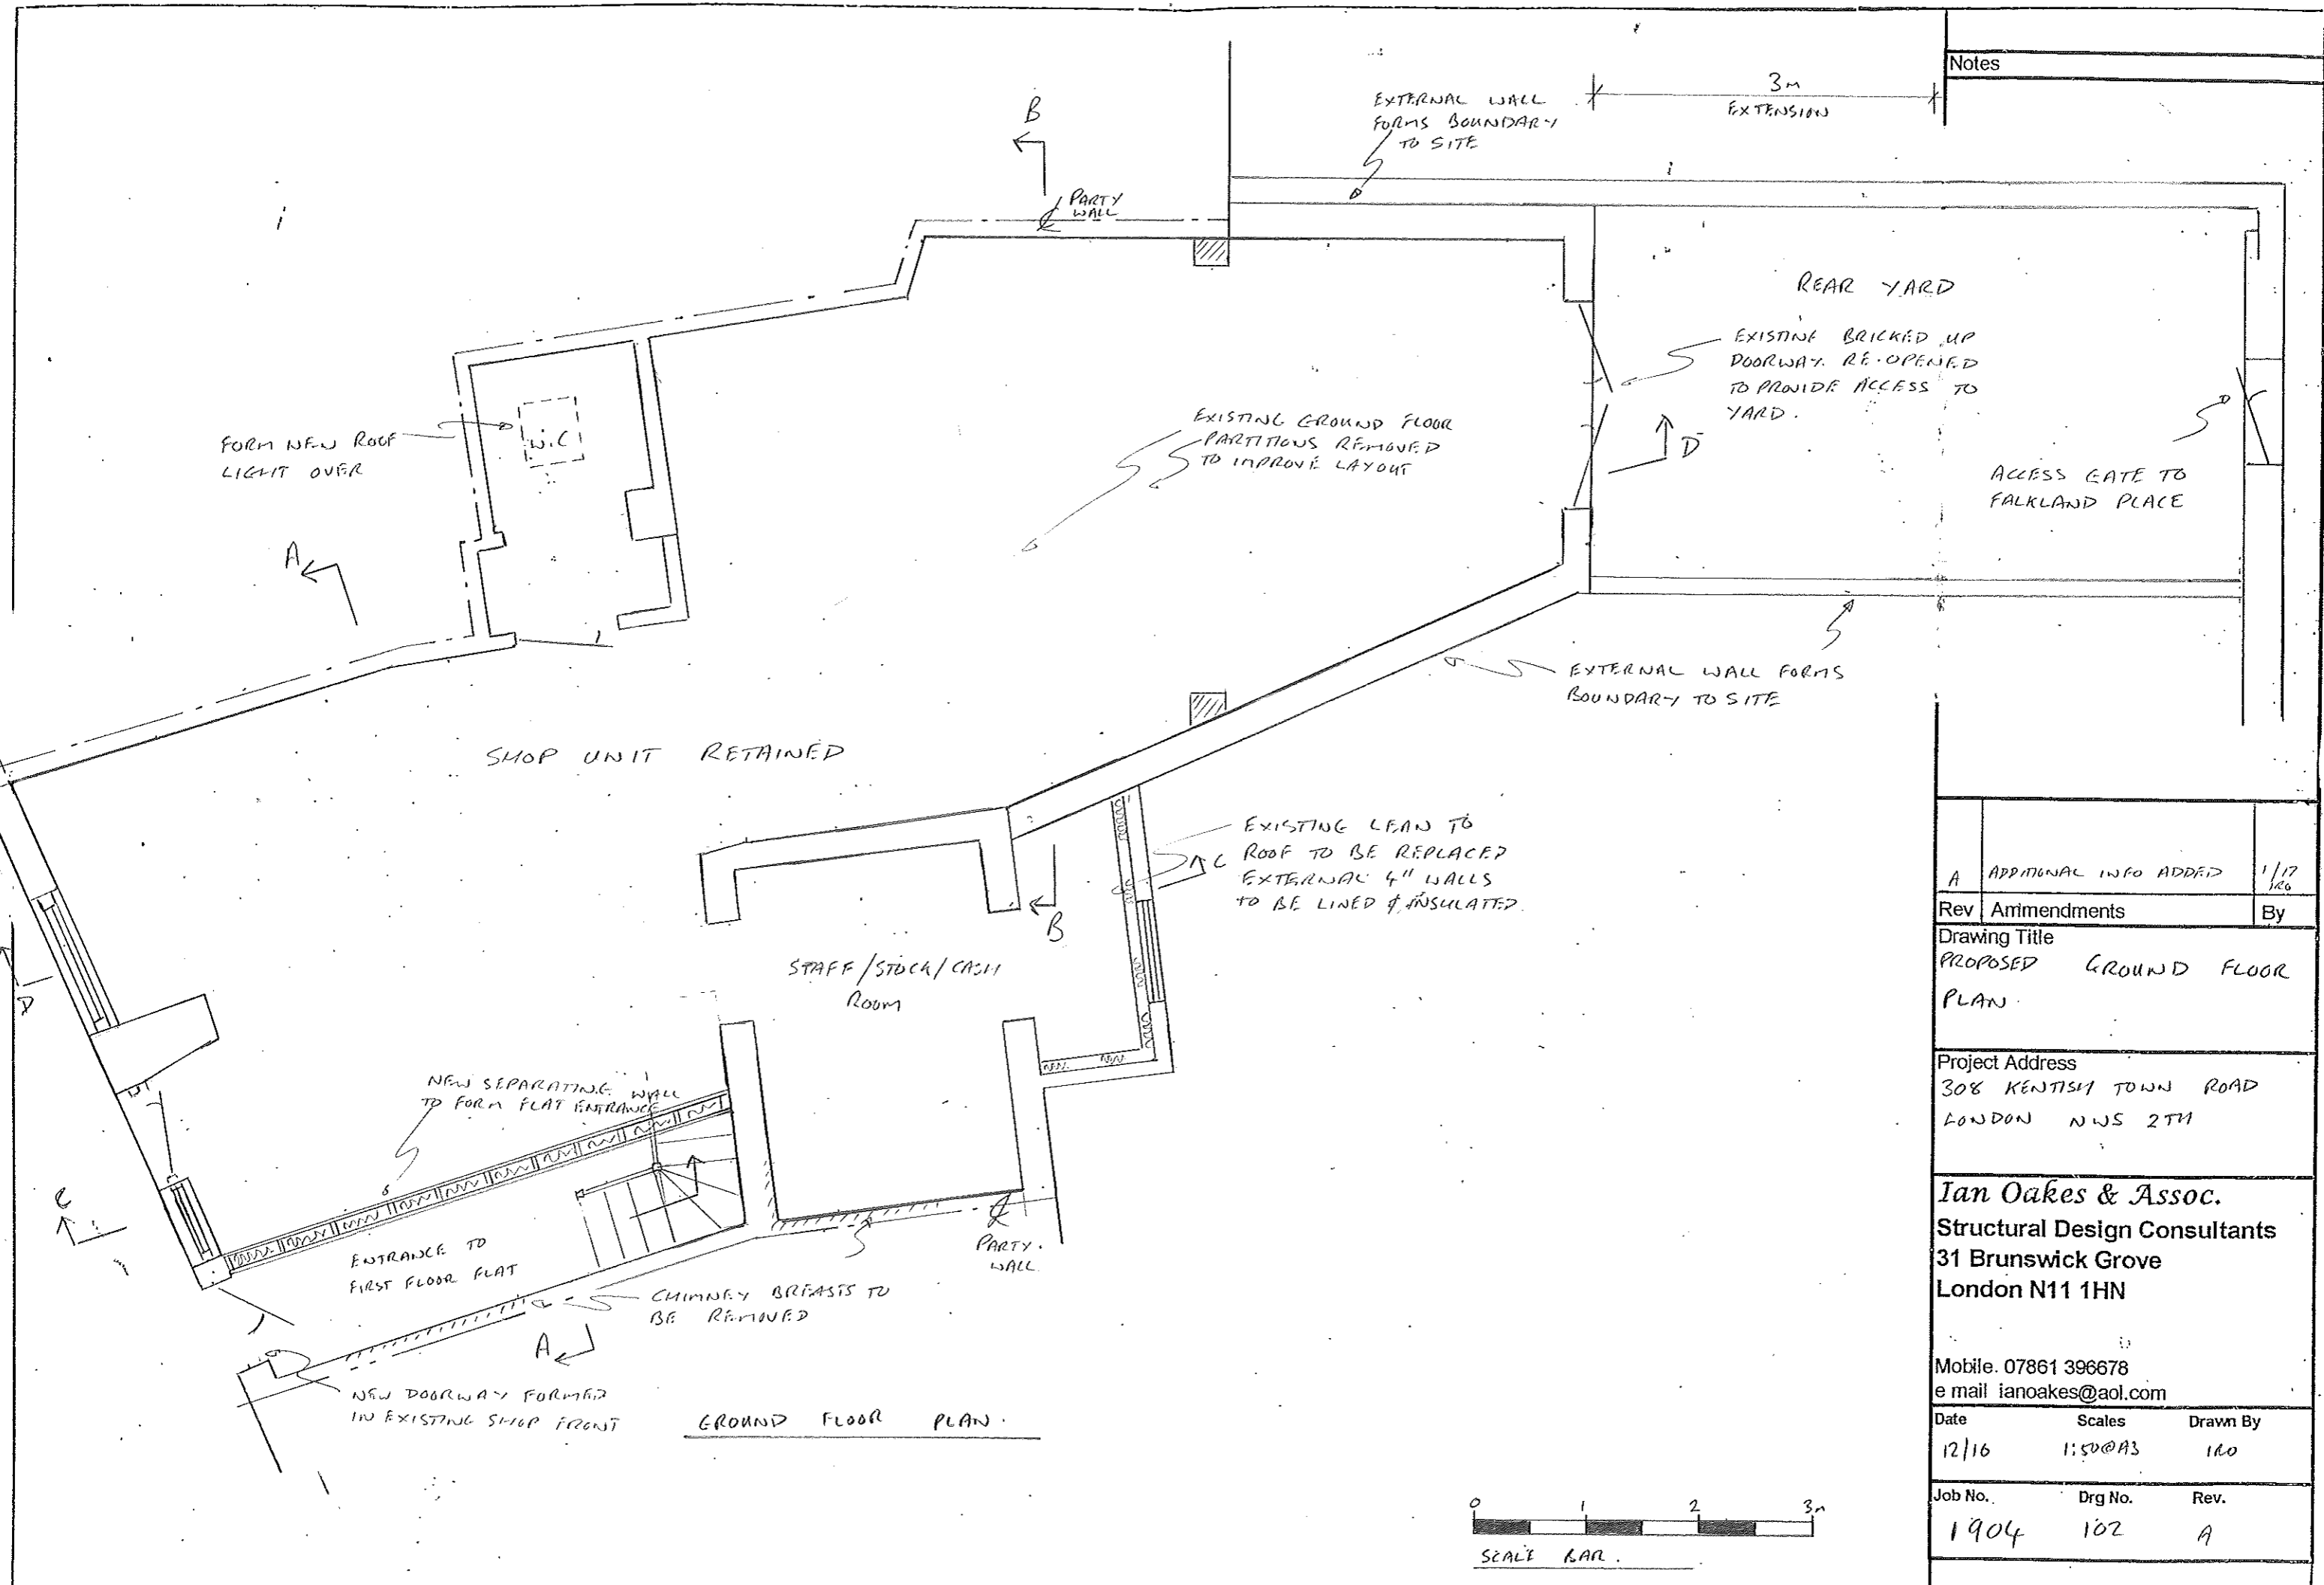 Notes
3m
EXTENSION
EXTERNAL WALL
FORMS BOUNDARY
TO SITE
B
PARTY
WALL
REAR YARD
EXISTING BRICKED UP
DOORWAY. RE-OPENED
TO PROVIDE ACCESS TO
YARD.
D
ACCESS GATE TO
FALKLAND PLACE
FORM NEW ROOF
LIGHT OVER
W.C
EXISTING GROUND FLOOR
PARTITIONS REMOVED
TO IMPROVE LAYOUT
A
EXTERNAL WALL FORMS
BOUNDARY TO SITE
SHOP UNIT RETAINED
EXISTING LEAN TO
ROOF TO BE REPLACED
EXTERNAL 4" WALLS
TO BE LINED & INSULATED.
C
B
STAFF/STOCK/CASH
ROOM
D
NEW SEPARATING WALL
TO FORM FLAT ENTRANCE
C
ENTRANCE TO
FIRST FLOOR FLAT
PARTY.
WALL
CHIMNEY BREASTS TO
BE REMOVED
A
NEW DOORWAY FORMED
IN EXISTING SHOP FRONT
GROUND FLOOR PLAN.
0 1 2 3m
SCALE BAR.
A ADDITIONAL INFO ADDED 1/17
IRO
Rev Ammendments By
Drawing Title
PROPOSED GROUND FLOOR
PLAN.
Project Address
308 KENTISH TOWN ROAD
LONDON NW5 2TH
Ian Oakes & Assoc.
Structural Design Consultants
31 Brunswick Grove
London N11 1HN
Mobile. 07861 396678
e mail ianoakes@aol.com
Date Scales Drawn By
12/16 1:50@A3 IRO
Job No. Drg No. Rev.
1904 102 A